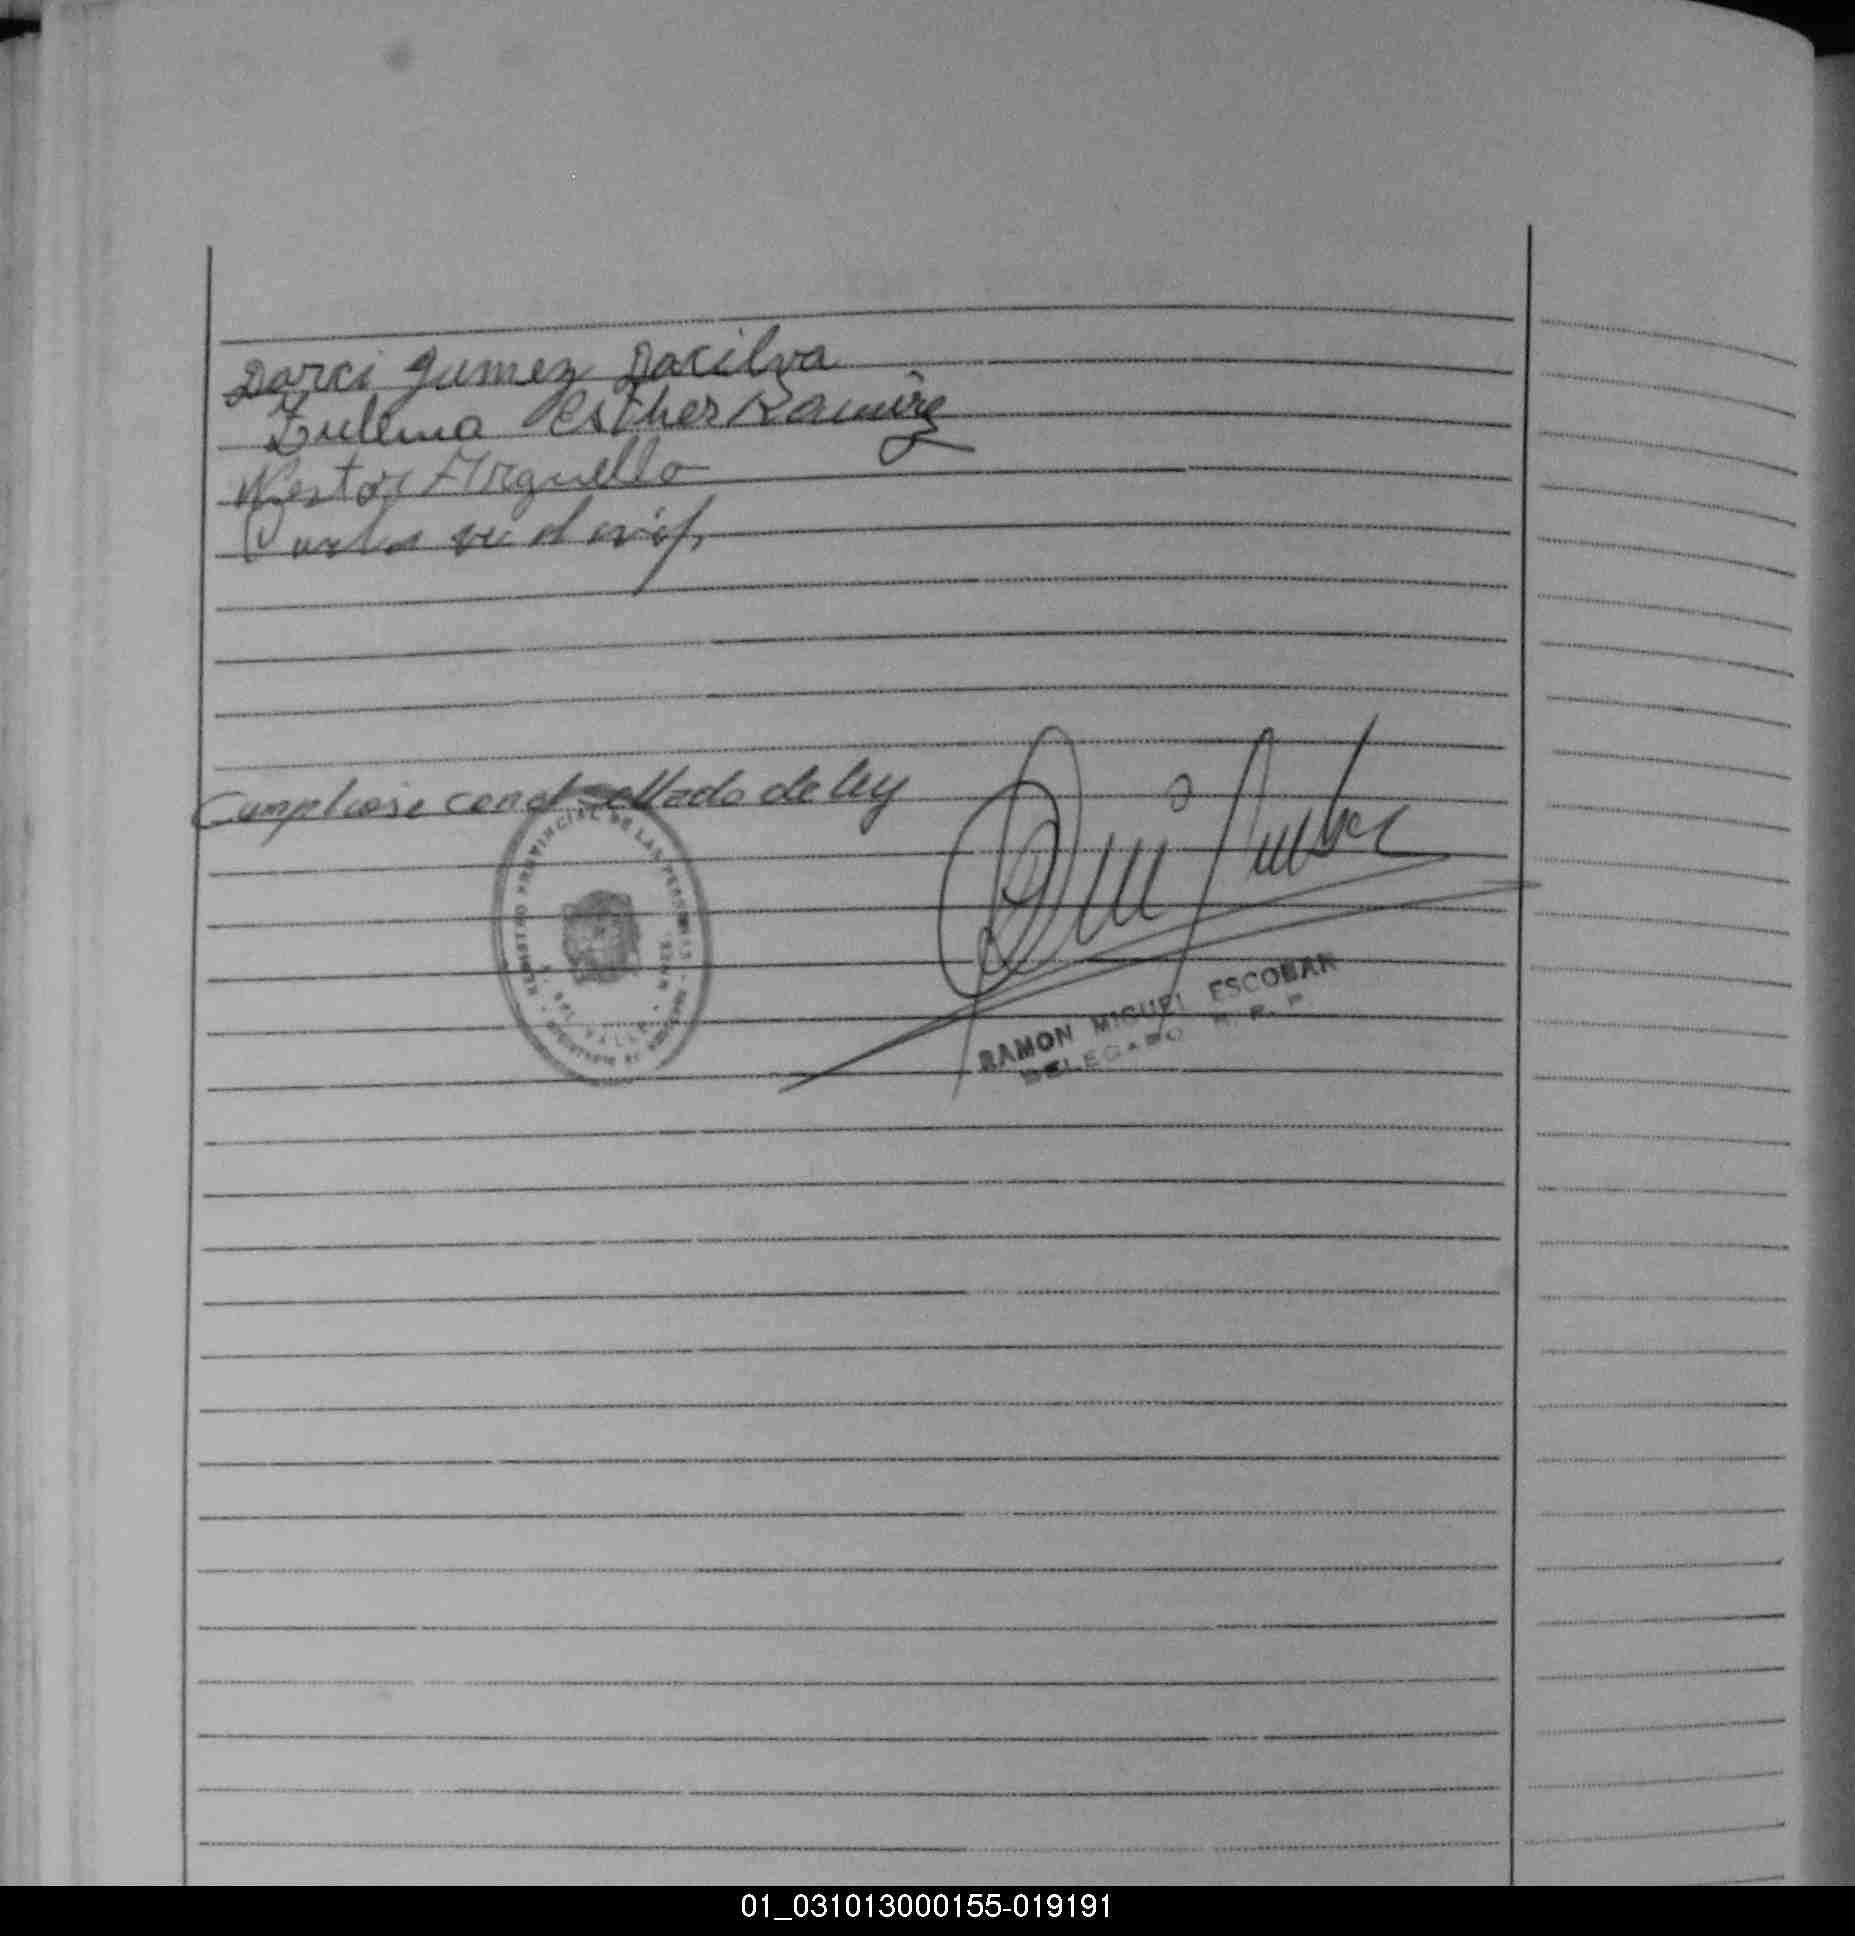 Darci gumez Dacilva
Zulema Esther Ramirez
Nestor Arguello
Carlos
Cumpliose con el sellado de ley
REGISTRO PROVINCIAL DE LAS PERSONAS
DEL VALLE
RAMON MIGUEL ESCOBAR
DELEGADO R. P. P.
01_031013000155-019191